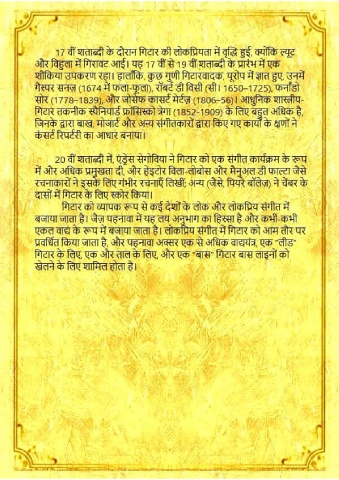 17 वीं शताब्दी के दौरान गिटार की लोकप्रियता में वृद्धि हुई, क्योंकि ल्यूट
और विहुला में गिरावट आई। यह 17 वीं से 19 वीं शताब्दी के प्रारंभ में एक
शौकिया उपकरण रहा। हालाँकि, कुछ गुणी गिटारवादक, यूरोप में ज्ञात हुए, उनमें
गैस्पर सनज़ (1674 में फला-फूला), रॉबर्ट डी विसी (सी। 1650–1725), फर्नांडो
सोर (1778–1839), और जोसेफ कासर्ट मेर्टज़ (1806–56)। आधुनिक शास्त्रीय-
गिटार तकनीक स्पैनियार्ड फ्रांसिस्को त्रेगा (1852-1909) के लिए बहुत अधिक है,
जिनके द्वारा बाख, मोजार्ट और अन्य संगीतकारों द्वारा किए गए कार्यों के क्षणों ने
कंसर्ट रिपर्टरी का आधार बनाया।
20 वीं शताब्दी में, एंड्रेस सेगोविया ने गिटार को एक संगीत कार्यक्रम के रूप
में और अधिक प्रमुखता दी, और हेइटोर विला-लोबोस और मैनुअल डी फाल्टा जैसे
रचनाकारों ने इसके लिए गंभीर रचनाएँ लिखीं; अन्य (जैसे, पियरे बोलेज़) ने चेंबर के
दासों में गिटार के लिए स्कोर किया।
गिटार को व्यापक रूप से कई देशों के लोक और लोकप्रिय संगीत में
बजाया जाता है। जैज़ पहनावा में यह लय अनुभाग का हिस्सा है और कभी-कभी
एकल वाद्य के रूप में बजाया जाता है। लोकप्रिय संगीत में गिटार को आम तौर पर
प्रवर्धित किया जाता है, और पहनावा अक्सर एक से अधिक वाद्ययंत्र, एक "लीड"
गिटार के लिए, एक और ताल के लिए, और एक "बास" गिटार बास लाइनों को
खेलने के लिए शामिल होता है।